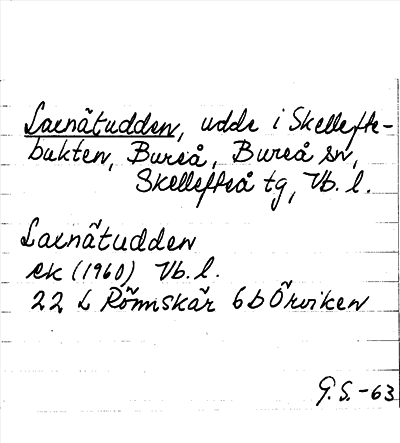 Laxnätudden, udde i Skellefte-
bukten, Bureå, Bureå sn,
Skellefteå tg, Vb. l.
Laxnätudden
ek (1960) Vb. l.
22 L Rönnskär 6b Örviken
G. S. -63